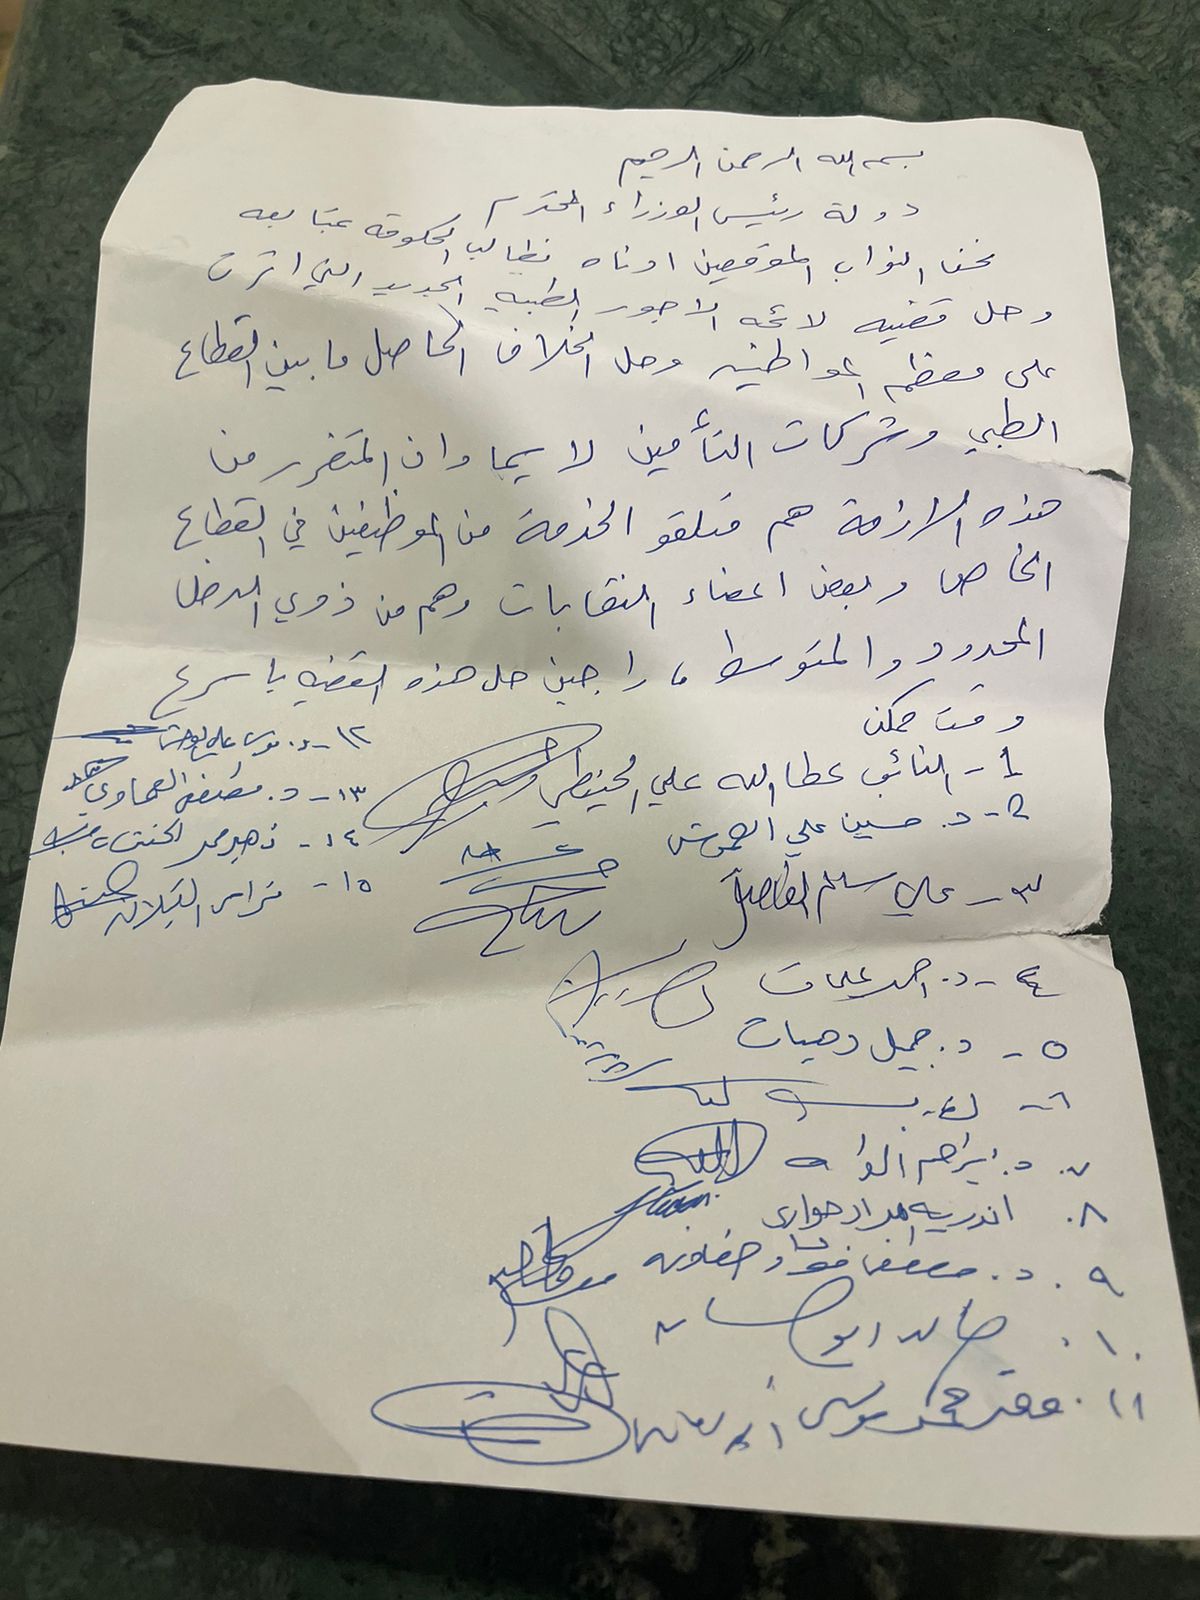 بسم الله الرحمن الرحيم
دولة رئيس الوزراء المحترم
نحن النواب الموقعين ادناه نطالب الحكومة بمتابعه
وحل قضيه لائحه الاجور الطبيه الجديده التي اثرت
على معظم المواطنين وحل الخلاف الحاصل ما بين القطاع
الطبي وشركات التأمين لا سيما وان المتضرر من
هذه الازمة هم متلقو الخدمة من الموظفين في القطاع
الخاص وبعض اعضاء النقابات وهم من ذوي الدخل
المحدود والمتوسط ، راجين حل هذه القضيه باسرع
وقت ممكن
1- النائب عطا الله علي الحنيطي
٢- د. حسين علي العموش
٣- علي سليم
٤- د. احمد عليمات
٥- د. جميل دهيسات
٦-
٧. د. ابراهيم
٨. اندريه مراد حواري
٩. د. مصطفى فؤاد خصاونه
١٠. خالد ابو حسان
١١. محمد موسى
١٢- د. موسى علي
١٣- د. مصطفى العماوي
١٤- زهير محمد
١٥-